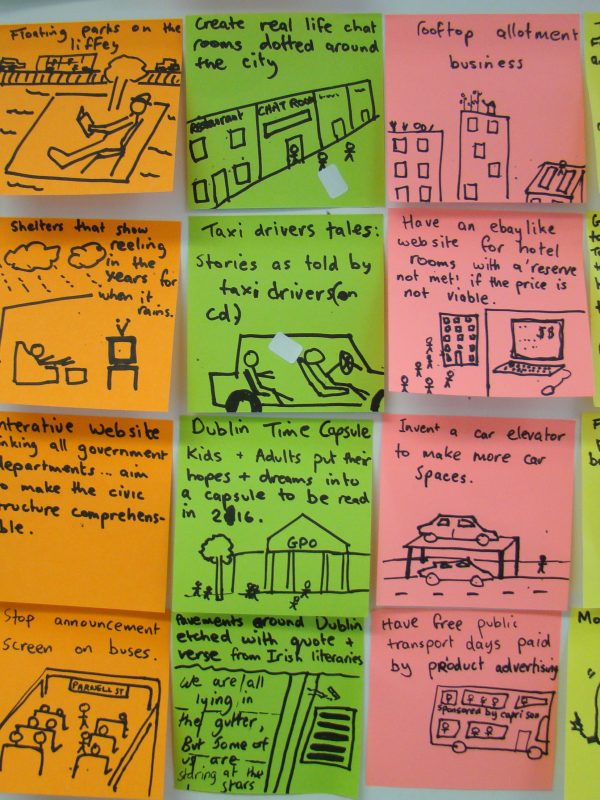 Floating parks on the
liffey
Create real life chat
rooms dotted around
the city
Restaurant
CHAT ROOM
rooftop allotment
business
Shelters that show
reeling
in the
years for
when it
rains.
Taxi drivers tales:
Stories as told by
taxi drivers (on
cd)
Have an ebay like
website for hotel
rooms with a 'reserve
not met' if the price is
not viable.
$$
nterative website
nking all government
departments... aim
o make the civic
tructure comprehens-
ble.
Dublin Time Capsule
Kids + Adults put their
hopes + dreams into
a capsule to be read
in 2016.
GPO
Invent a car elevator
to make more car
spaces.
Stop announcement
screen on buses.
PARNELL ST
Pavements around Dublin
etched with quote +
verse from Irish literaries
we are all
lying in
the gutter,
But some of
us are
staring at the
stars
Have free public
transport days paid
by product advertising
sponsored by capri son
Mo